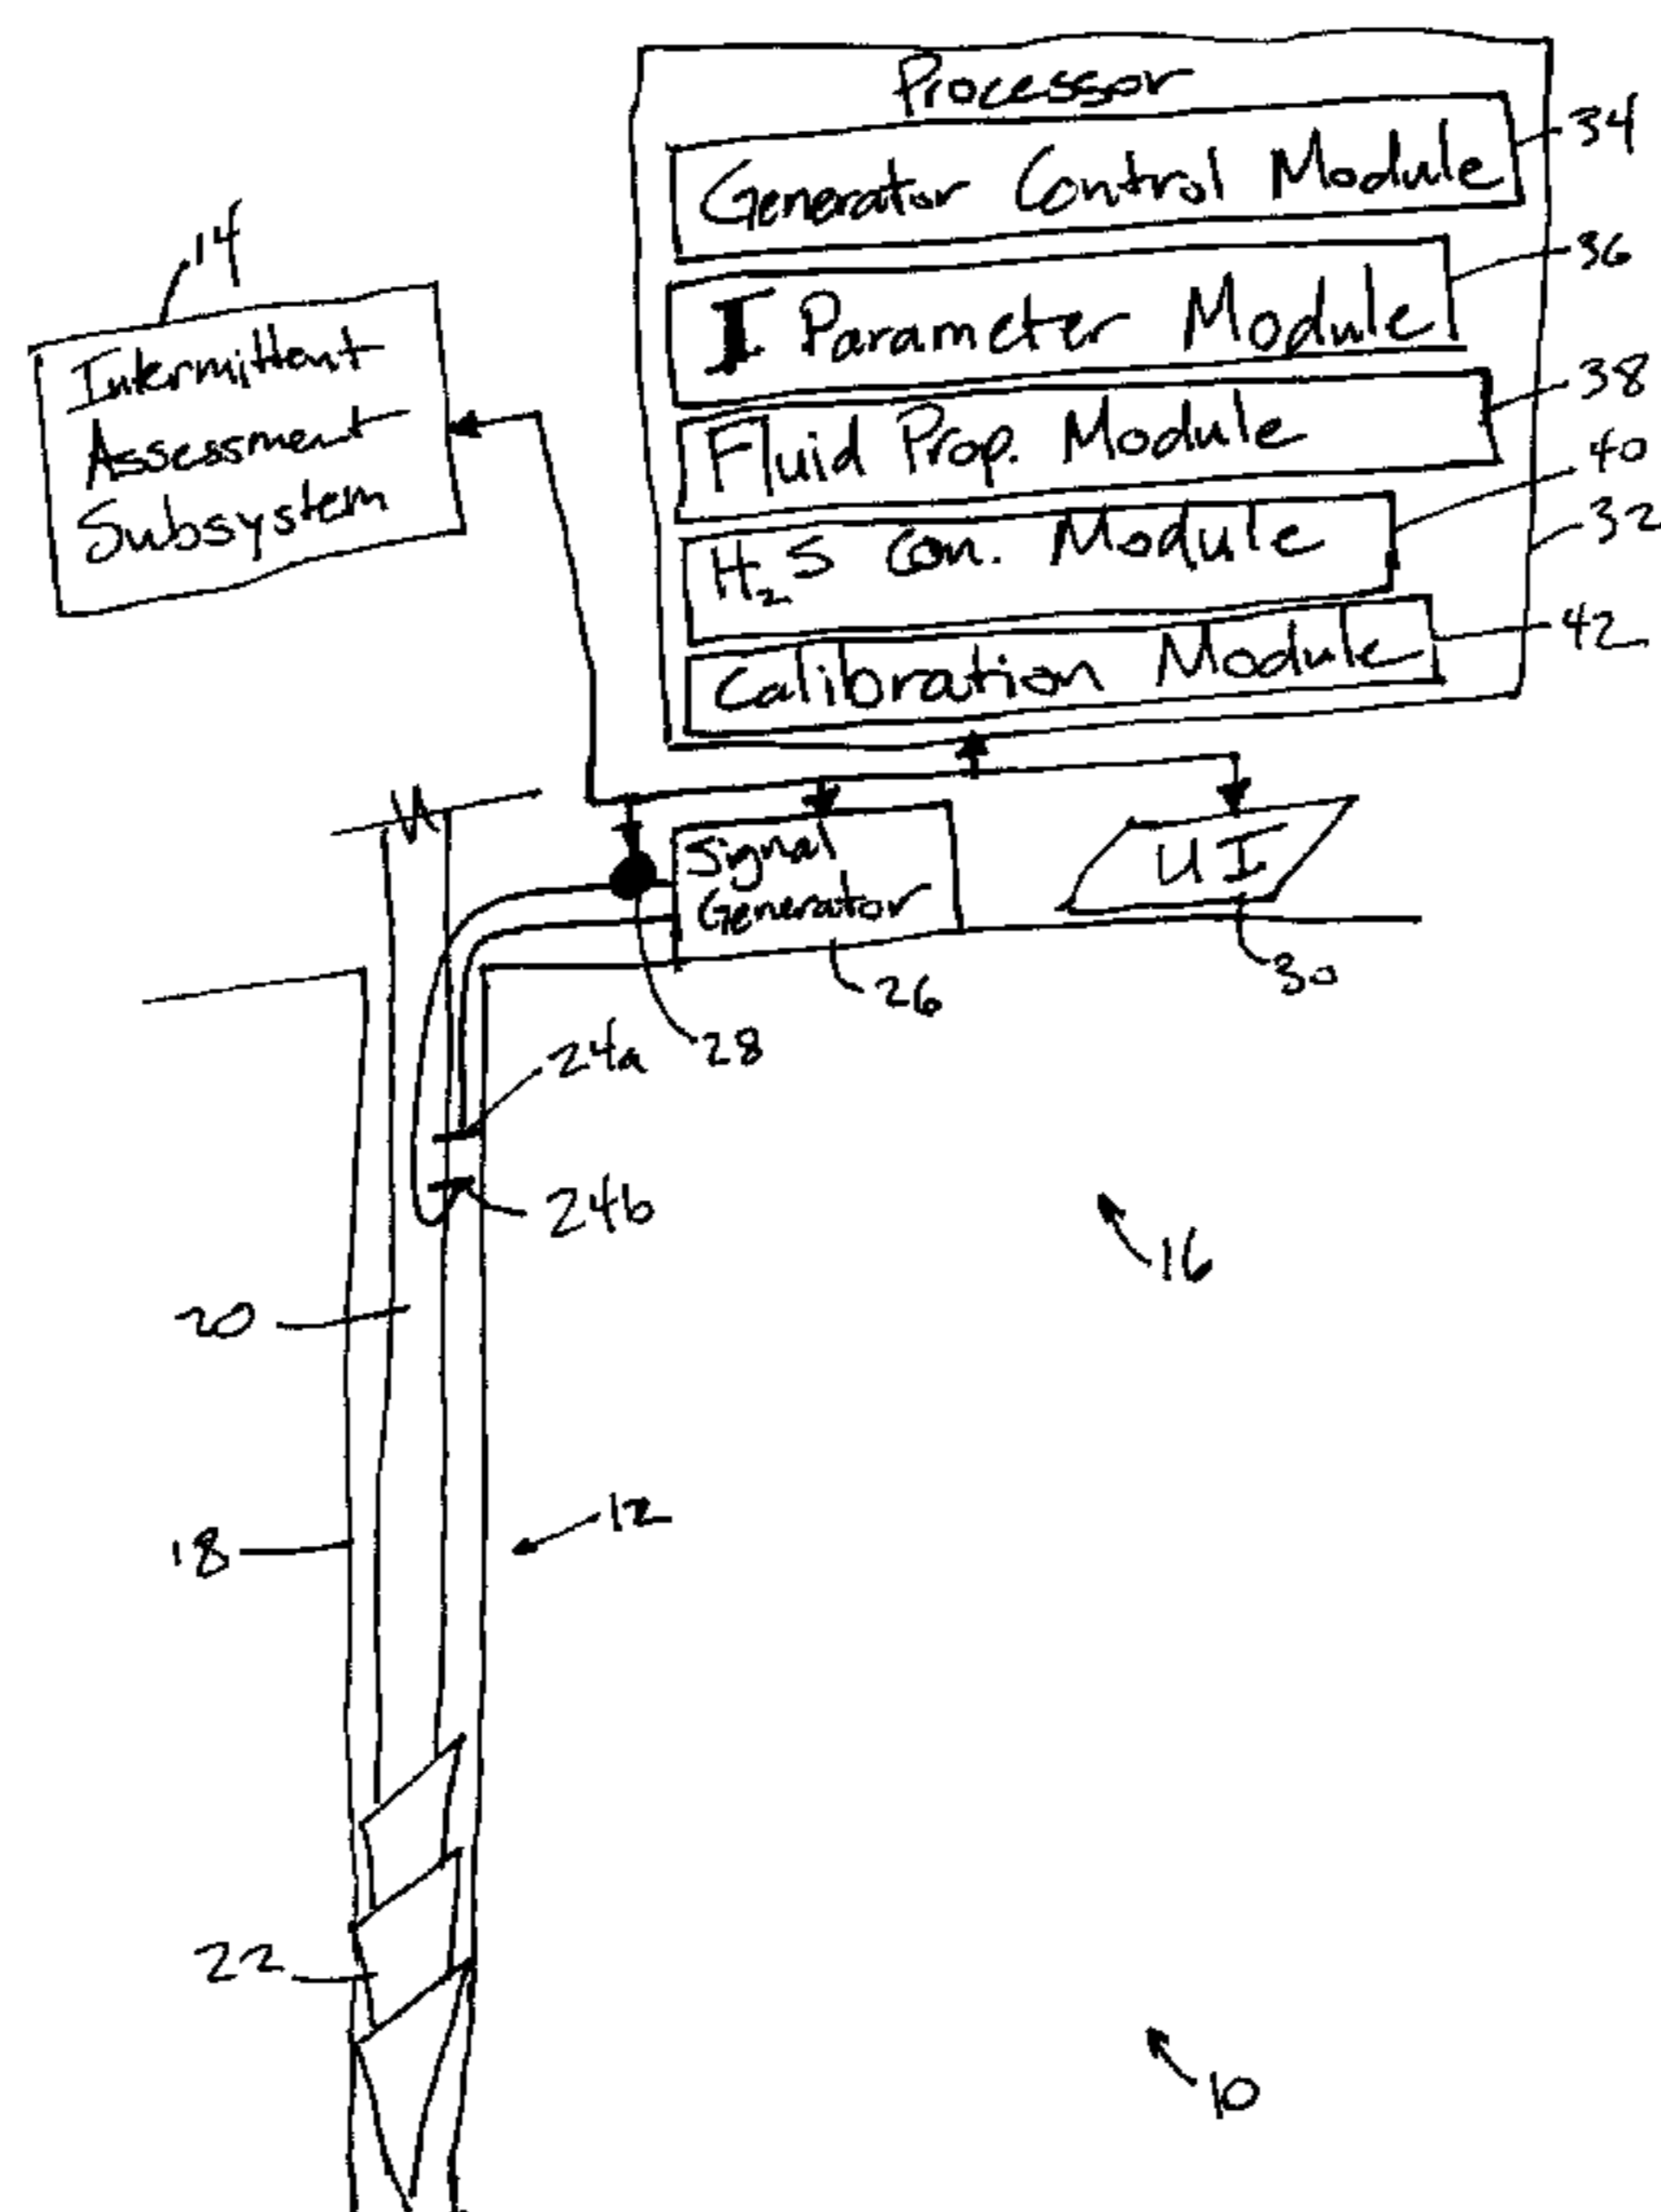 Processor
Generator Control Module
34
I Parameter Module
36
Fluid Prop. Module
38
H₂S Con. Module
40
32
Calibration Module
42
14
Intermittent
Assessment
Subsystem
Signal
Generator
UI
26
30
28
24a
24b
16
20
12
18
22
10